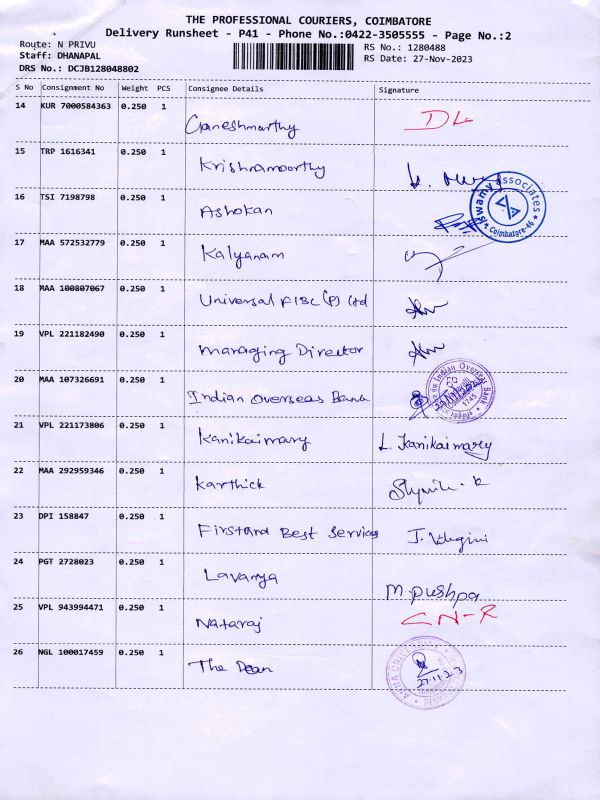 THE PROFESSIONAL COURIERS, COIMBATORE
Delivery Runsheet - P41 - Phone No.:0422-3505555 - Page No.:2
Route: N PRIVU
RS No.: 1280488
Staff: DHANAPAL
RS Date: 27-Nov-2023
DRS No.: DCJB128048802
S No Consignment No Weight PCS Consignee Details Signature
14 KUR 7000584363 0.250 1 Ganeshmarthy DL
15 TRP 1616341 0.250 1 Krishnamoorthy
16 TSI 7198798 0.250 1 Ashokan
Swamy Associates
* Coimbatore-46 *
17 MAA 572532779 0.250 1 Kalyanam
18 MAA 100807067 0.250 1 Universal FIBC (P) Ltd
19 VPL 221182490 0.250 1 Managing Director
20 MAA 107326691 0.250 1 Indian Overseas Bank
Indian Overseas Bank
1745
21 VPL 221173806 0.250 1 Kanikaimary L. Kanikaimary
22 MAA 292959346 0.250 1 Karthick
23 DPI 158847 0.250 1 Firstand Best Services
24 PGT 2728023 0.250 1 Lavanya M. pushpa
25 VPL 943994471 0.250 1 Nataraj CN-R
26 NGL 100017459 0.250 1 The Dean
27.11.23